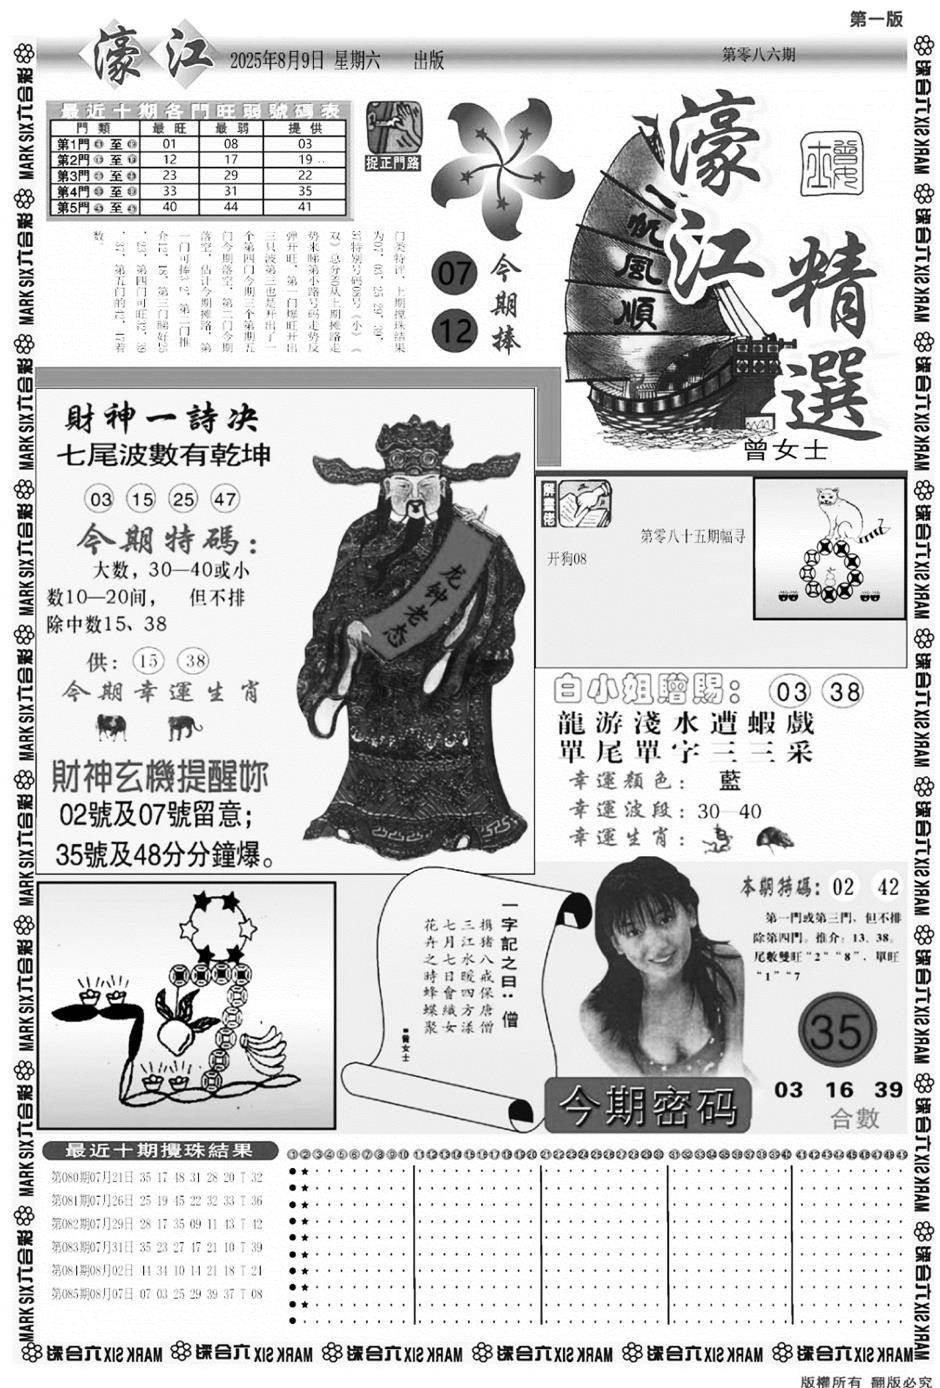 第一版
濠江
2025年8月9日 星期六 出版
第零八六期
最近十期各門旺弱號碼表
門類 最旺 最弱 提供
第1門 至 01 08 03
第2門 至 12 17 19
第3門 至 23 29 22
第4門 至 33 31 35
第5門 至 40 44 41
捉正門路
07
12
今期捧
一帆風順
濠江精選
曾女士
门类特评，上期搅珠结果
势来睇第小路号码走势反
弹开旺，第一门爆旺开出
三只波第三也是开出了一
个第四门今期三个第期五
门今期落空，第二门今期
落空，估计今期摊路，第
数。
財神一詩决
七尾波數有乾坤
03 15 25 47
今期特碼：
大数，30—40或小
数10—20间， 但不排
除中数15、38
供：15 38
今期幸運生肖
財神玄機提醒妳
02號及07號留意；
35號及48分分鐘爆。
龙钟老态
解畫佬
第零八十五期幅寻
开狗08
白小姐贈賜：03 38
龍游淺水遭蝦戲
單尾單字三三采
幸運顏色：藍
幸運波段：30—40
幸運生肖：
一字記之曰：僧
携猪八戒保唐僧
三江水暖四方漾
七月七日會織女
花卉之時蜂蝶聚
■曾女士
本期特碼：02 42
第一門或第三門，但不排
除第四門。推介：13、38。
尾數雙旺“2”“8”，單旺
“1”“7
35
03 16 39
合數
今期密码
最近十期攪珠結果
第080期07月21日 35 17 48 31 28 20 T 32
第081期07月26日 25 19 45 22 32 33 T 36
第082期07月29日 28 17 35 09 11 43 T 42
第083期07月31日 35 23 27 47 21 10 T 39
第084期08月02日 44 34 10 14 21 18 T 24
第085期08月07日 07 03 25 29 39 37 T 08
①②③④⑤⑥⑦⑧⑨⑩ ⑪⑫⑬⑭⑮⑯⑰⑱⑲⑳ ㉑㉒㉓㉔㉕㉖㉗㉘㉙㉚ ㉛㉜㉝㉞㉟㊱㊲㊳㊴㊵ ㊶㊷㊸㊹㊺㊻㊼㊽㊾
六合彩 MARK SIX
版權所有 翻版必究